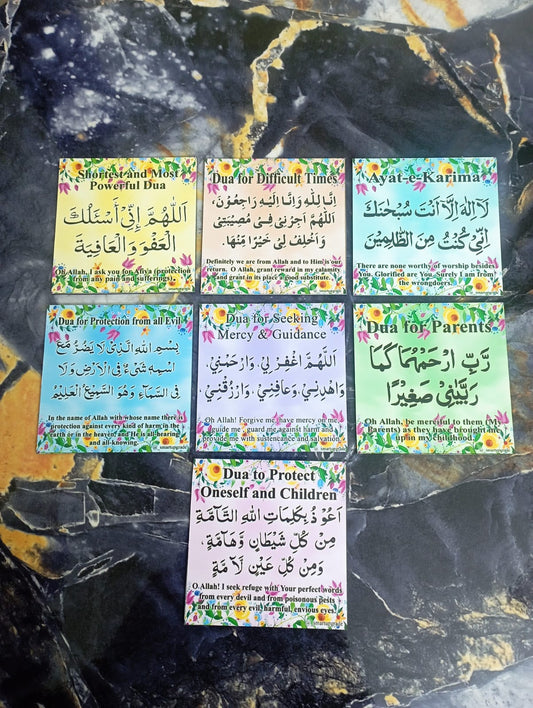 Shortest and Most
Powerful Dua
اَللّٰهُمَّ اِنِّىْ اَسْئَلُكَ
الْعَفْوَ وَالْعَافِيَةَ
Oh Allah, I ask you for Afiya (protection
from any pain and sufferings).
Dua for Difficult Times
اِنَّا لِلّٰهِ وَاِنَّا اِلَيْهِ رَاجِعُوْنَ،
اَللّٰهُمَّ اَجِرْنِىْ فِىْ مُصِيْبَتِىْ
وَاَخْلِفْ لِىْ خَيْرًا مِّنْهَا.
Definitely we are from Allah and to Him is our
return. O Allah, grant reward in my calamity
and grant in its place a good substitute.
Ayat-e-Karima
لَاۤ اِلٰهَ اِلَّاۤ اَنْتَ سُبْحٰنَكَ
اِنِّىْ كُنْتُ مِنَ الظّٰلِمِيْنَ
There are none worthy of worship besides
You. Glorified are You. Surely I am from
the wrongdoers.
Dua for Protection from all Evil
بِسْمِ اللهِ الَّذِىْ لَا يَضُرُّ مَعَ
اسْمِهٖ شَىْءٌ فِى الْاَرْضِ وَلَا
فِى السَّمَاءِ وَهُوَ السَّمِيْعُ الْعَلِيْمُ
In the name of Allah with whose name there is
protection against every kind of harm in the
earth or in the heaven, and He is all-hearing
and all-knowing.
Dua for Seeking
Mercy & Guidance
اَللّٰهُمَّ اغْفِرْ لِىْ، وَارْحَمْنِىْ،
وَاهْدِنِىْ، وَعَافِنِىْ، وَارْزُقْنِىْ،
Oh Allah! Forgive me, have mercy on me,
guide me, guard me against harm and
provide me with sustencance and salvation.
Dua for Parents
رَبِّ ارْحَمْهُمَا كَمَا
رَبَّيٰنِىْ صَغِيْرًا
Oh Allah, be merciful to them (My
Parents) as they have brought me
up in my childhood.
Dua to Protect
Oneself and Children
اَعُوْذُ بِكَلِمَاتِ اللهِ التَّامَّةِ
مِنْ كُلِّ شَيْطَانٍ وَّهَامَّةٍ،
وَمِنْ كُلِّ عَيْنٍ لَّامَّةٍ
O Allah! I seek refuge with Your perfect words
from every devil and from poisonous pests
and from every evil, harmful, envious eyes.